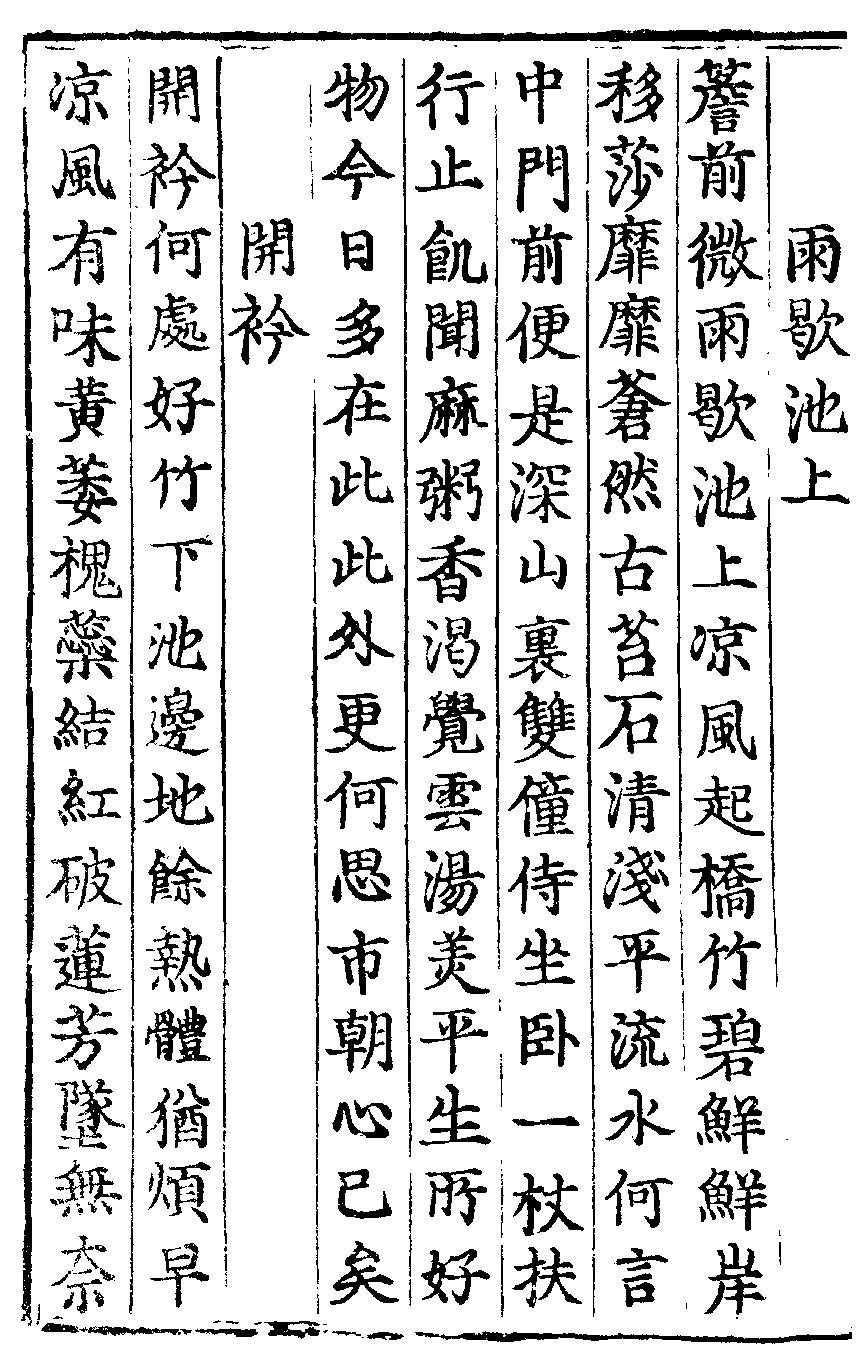 雨歇池上
簷前微雨歇池上凉風起橋竹碧鮮鮮岸
移莎靡靡蒼然古苔石清淺平流水何言
中門前便是深山裏雙僮侍坐卧一杖扶
行止飢聞麻粥香渇覺雲湯美平生所好
物今日多在此此外更何思市朝心已矣
開衿
開衿何處好竹下池邊地餘熱體猶煩早
凉風有味黄萎槐蘂結紅破蓮芳墜無奈